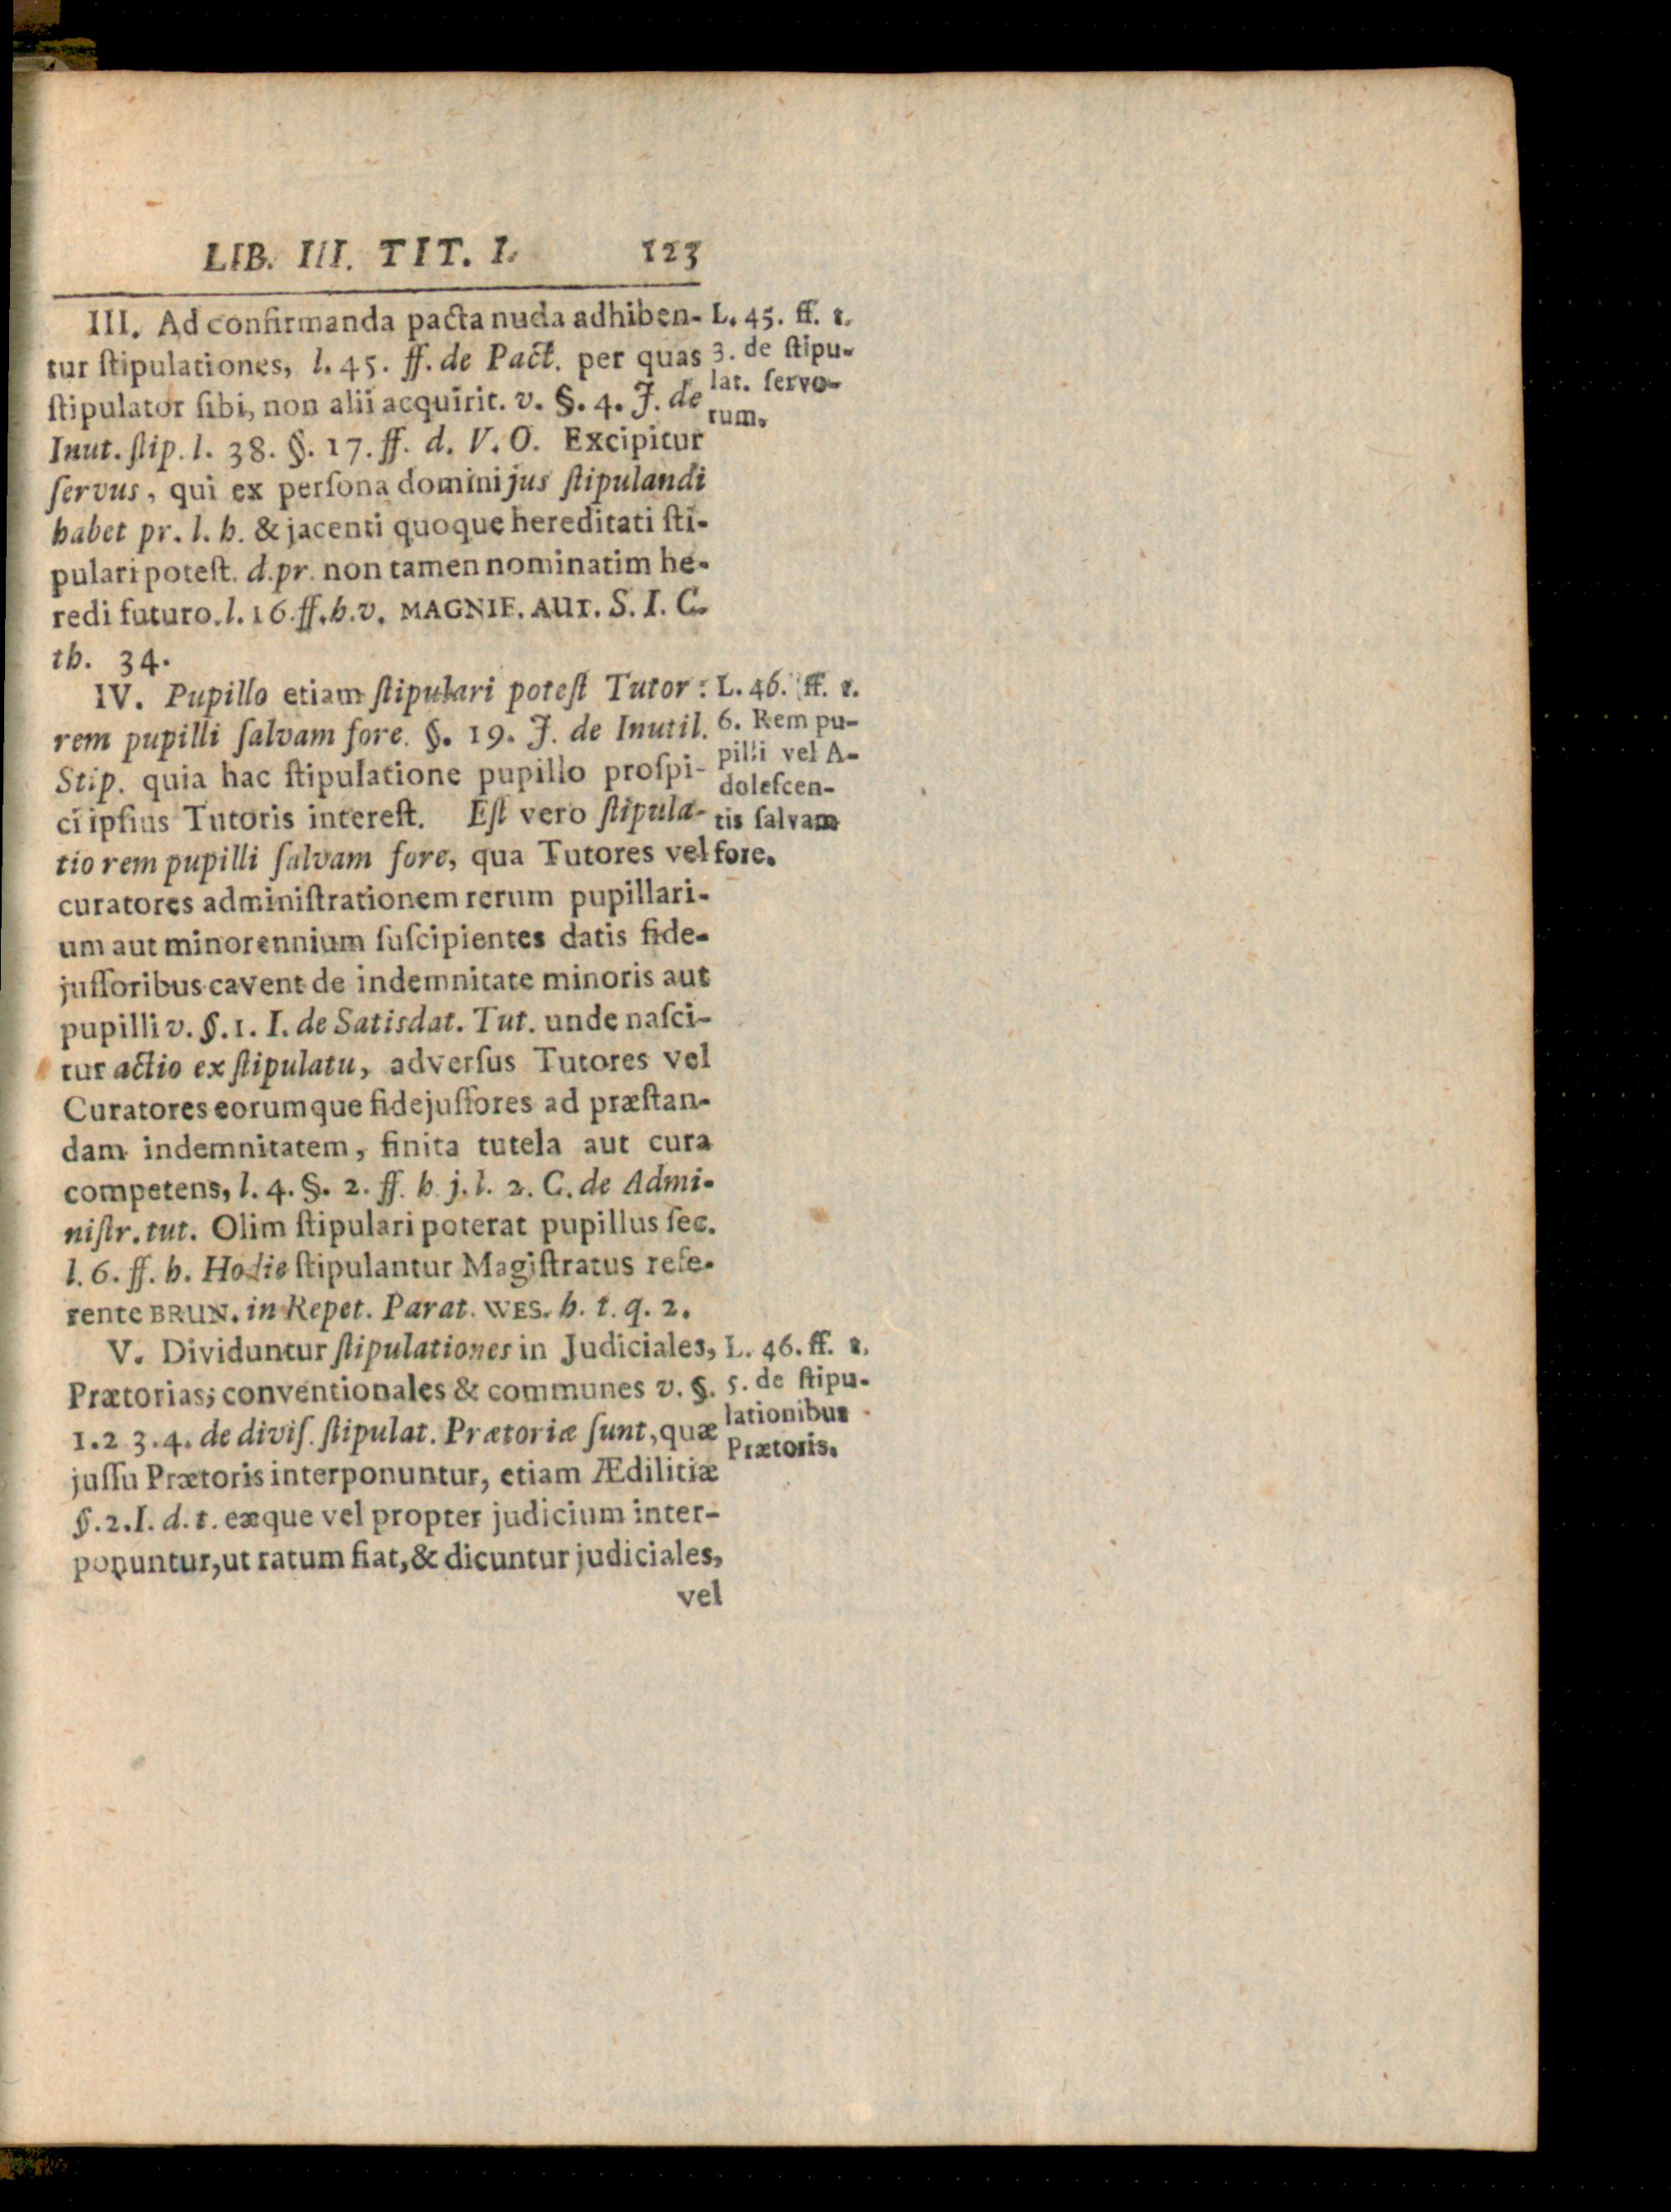 LIB. III. TIT. I. 123
III. Ad confirmanda pacta nuda adhiben-
tur ſtipulationes, l. 45. ff. de Pact. per quas
ſtipulator ſibi, non alii acquirit. v. §. 4. J. de
Inut. ſtip. l. 38. §. 17. ff. d. V. O. Excipitur
ſervus, qui ex perſona domini jus ſtipulandi
habet pr. l. h. & jacenti quoque hereditati ſti-
pulari poteſt. d. pr. non tamen nominatim he-
redi futuro. l. 16. ff. h. v. MAGNIF. AUT. S. I. C.
th. 34.
L. 45. ff. t.
3. de ſtipu-
lat. ſervo-
rum.
IV. Pupillo etiam ſtipulari poteſt Tutor:
rem pupilli ſalvam fore. §. 19. J. de Inutil.
Stip. quia hac ſtipulatione pupillo proſpi-
ci ipſius Tutoris intereſt. Eſt vero ſtipula-
tio rem pupilli ſalvam fore, qua Tutores vel
curatores adminiſtrationem rerum pupillari-
um aut minorennium ſuſcipientes datis fide-
juſſoribus cavent de indemnitate minoris aut
pupilli v. §. 1. I. de Satisdat. Tut. unde naſci-
tur actio ex ſtipulatu, adverſus Tutores vel
Curatores eorumque fidejuſſores ad præſtan-
dam indemnitatem, finita tutela aut cura
competens, l. 4. §. 2. ff. h. j. l. 2. C. de Admi-
niſtr. tut. Olim ſtipulari poterat pupillus ſec.
l. 6. ff. h. Hodie ſtipulantur Magiſtratus refe-
rente BRUN. in Repet. Parat. WES. h. t. q. 2.
L. 46. ff. t.
6. Rem pu-
pilli vel A-
doleſcen-
tis ſalvam
fore.
V. Dividuntur ſtipulationes in Judiciales,
Prætorias; conventionales & communes v. §.
1. 2 3. 4. de diviſ. ſtipulat. Prætoriæ ſunt, quæ
juſſu Prætoris interponuntur, etiam Ædilitiæ
§. 2. I. d. t. eæque vel propter judicium inter-
ponuntur, ut ratum fiat, & dicuntur judiciales,
L. 46. ff. t.
5. de ſtipu-
lationibus
Prætoris.
vel